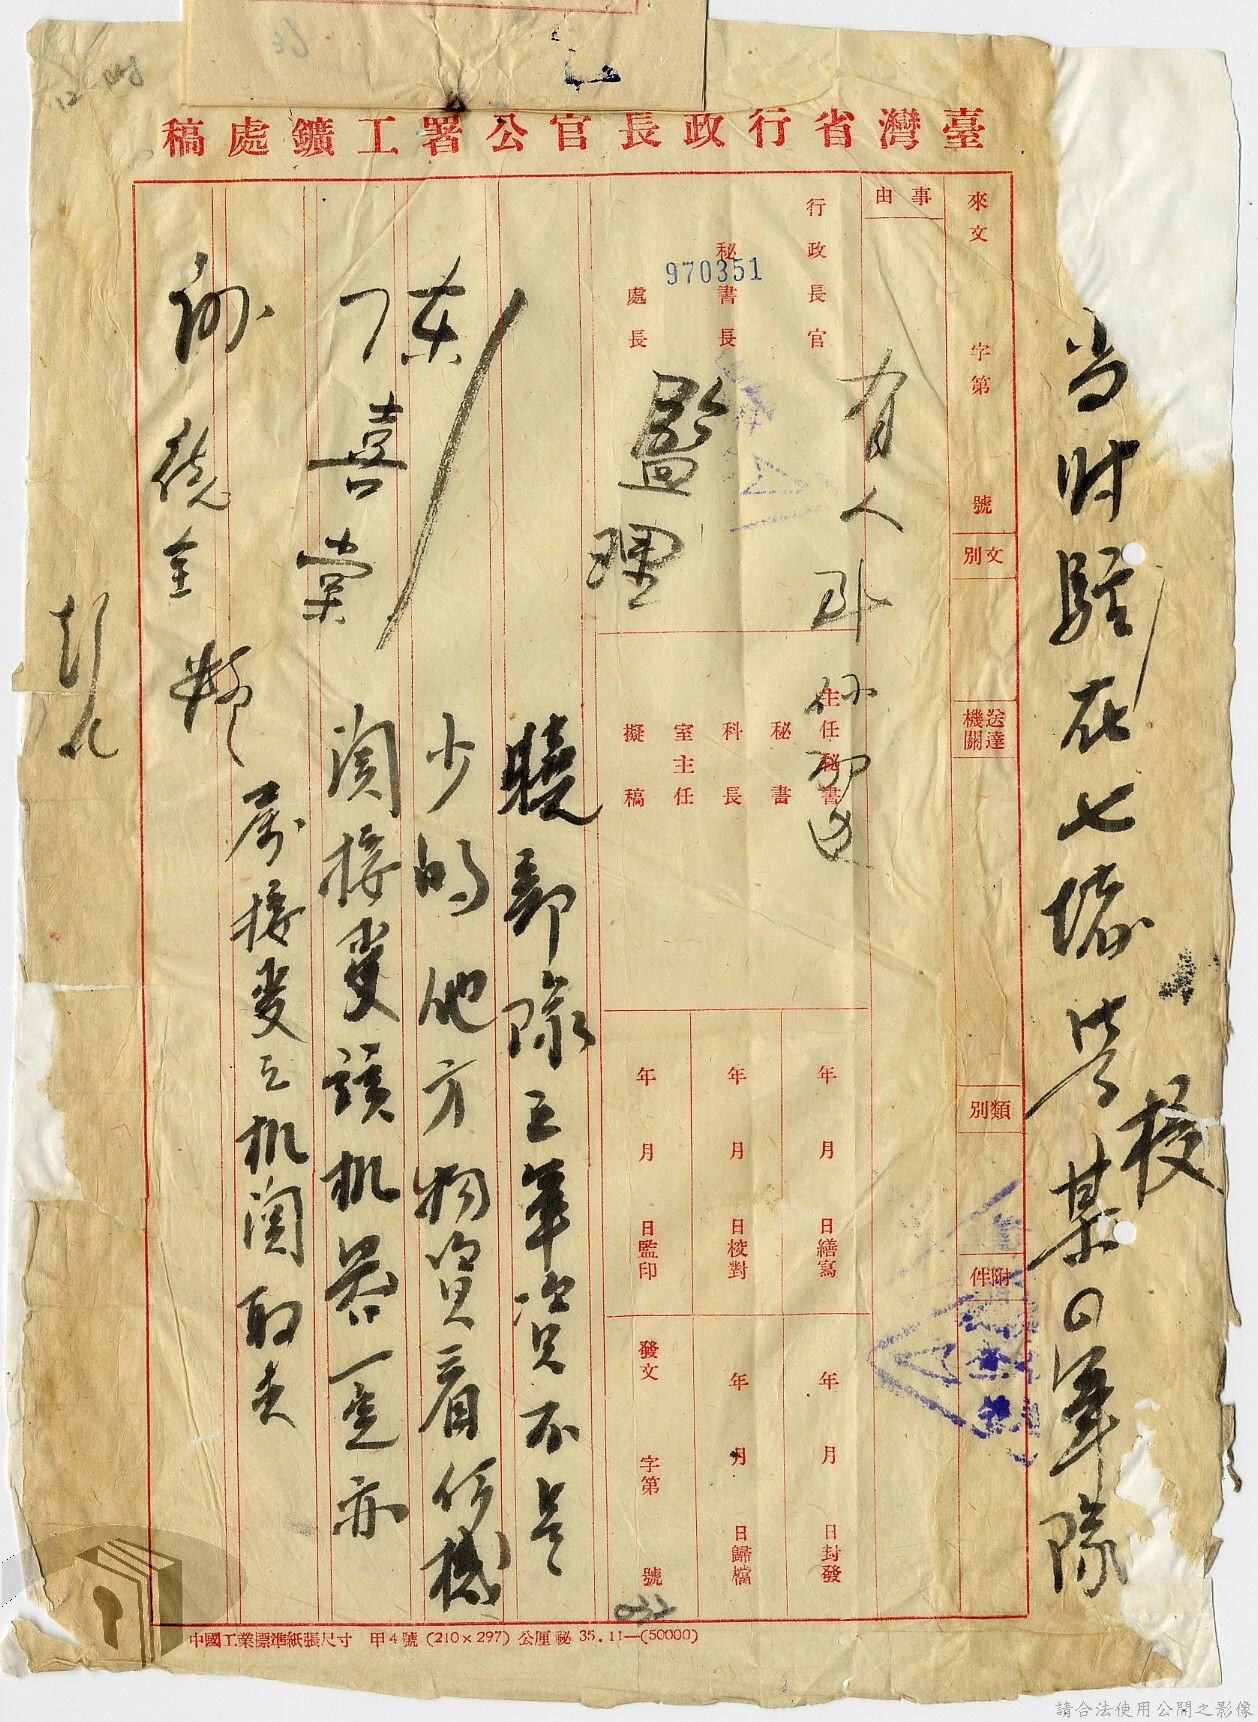 臺灣省行政長官公署工鑛處稿
當時駐在七堵學校某日軍隊
來文 字第 號
文別
送達機關
類別
附件
事由
有人
行政長官
秘書長
處長
970351
監理
主任秘書
秘書
科長
室主任
擬稿
年 月 日繕寫
年 月 日校對
年 月 日監印
年 月 日封發
年 月 日歸檔
發文 字第 號
曉部隊之軍資不是
少的他方物資看何機
関接受該机器一定亦
屬接受之机関取去
陳
喜棠
中國工業標準紙張尺寸 甲4號 (210×297) 公厘 秘 35.11—(50000)
請合法使用公開之影像